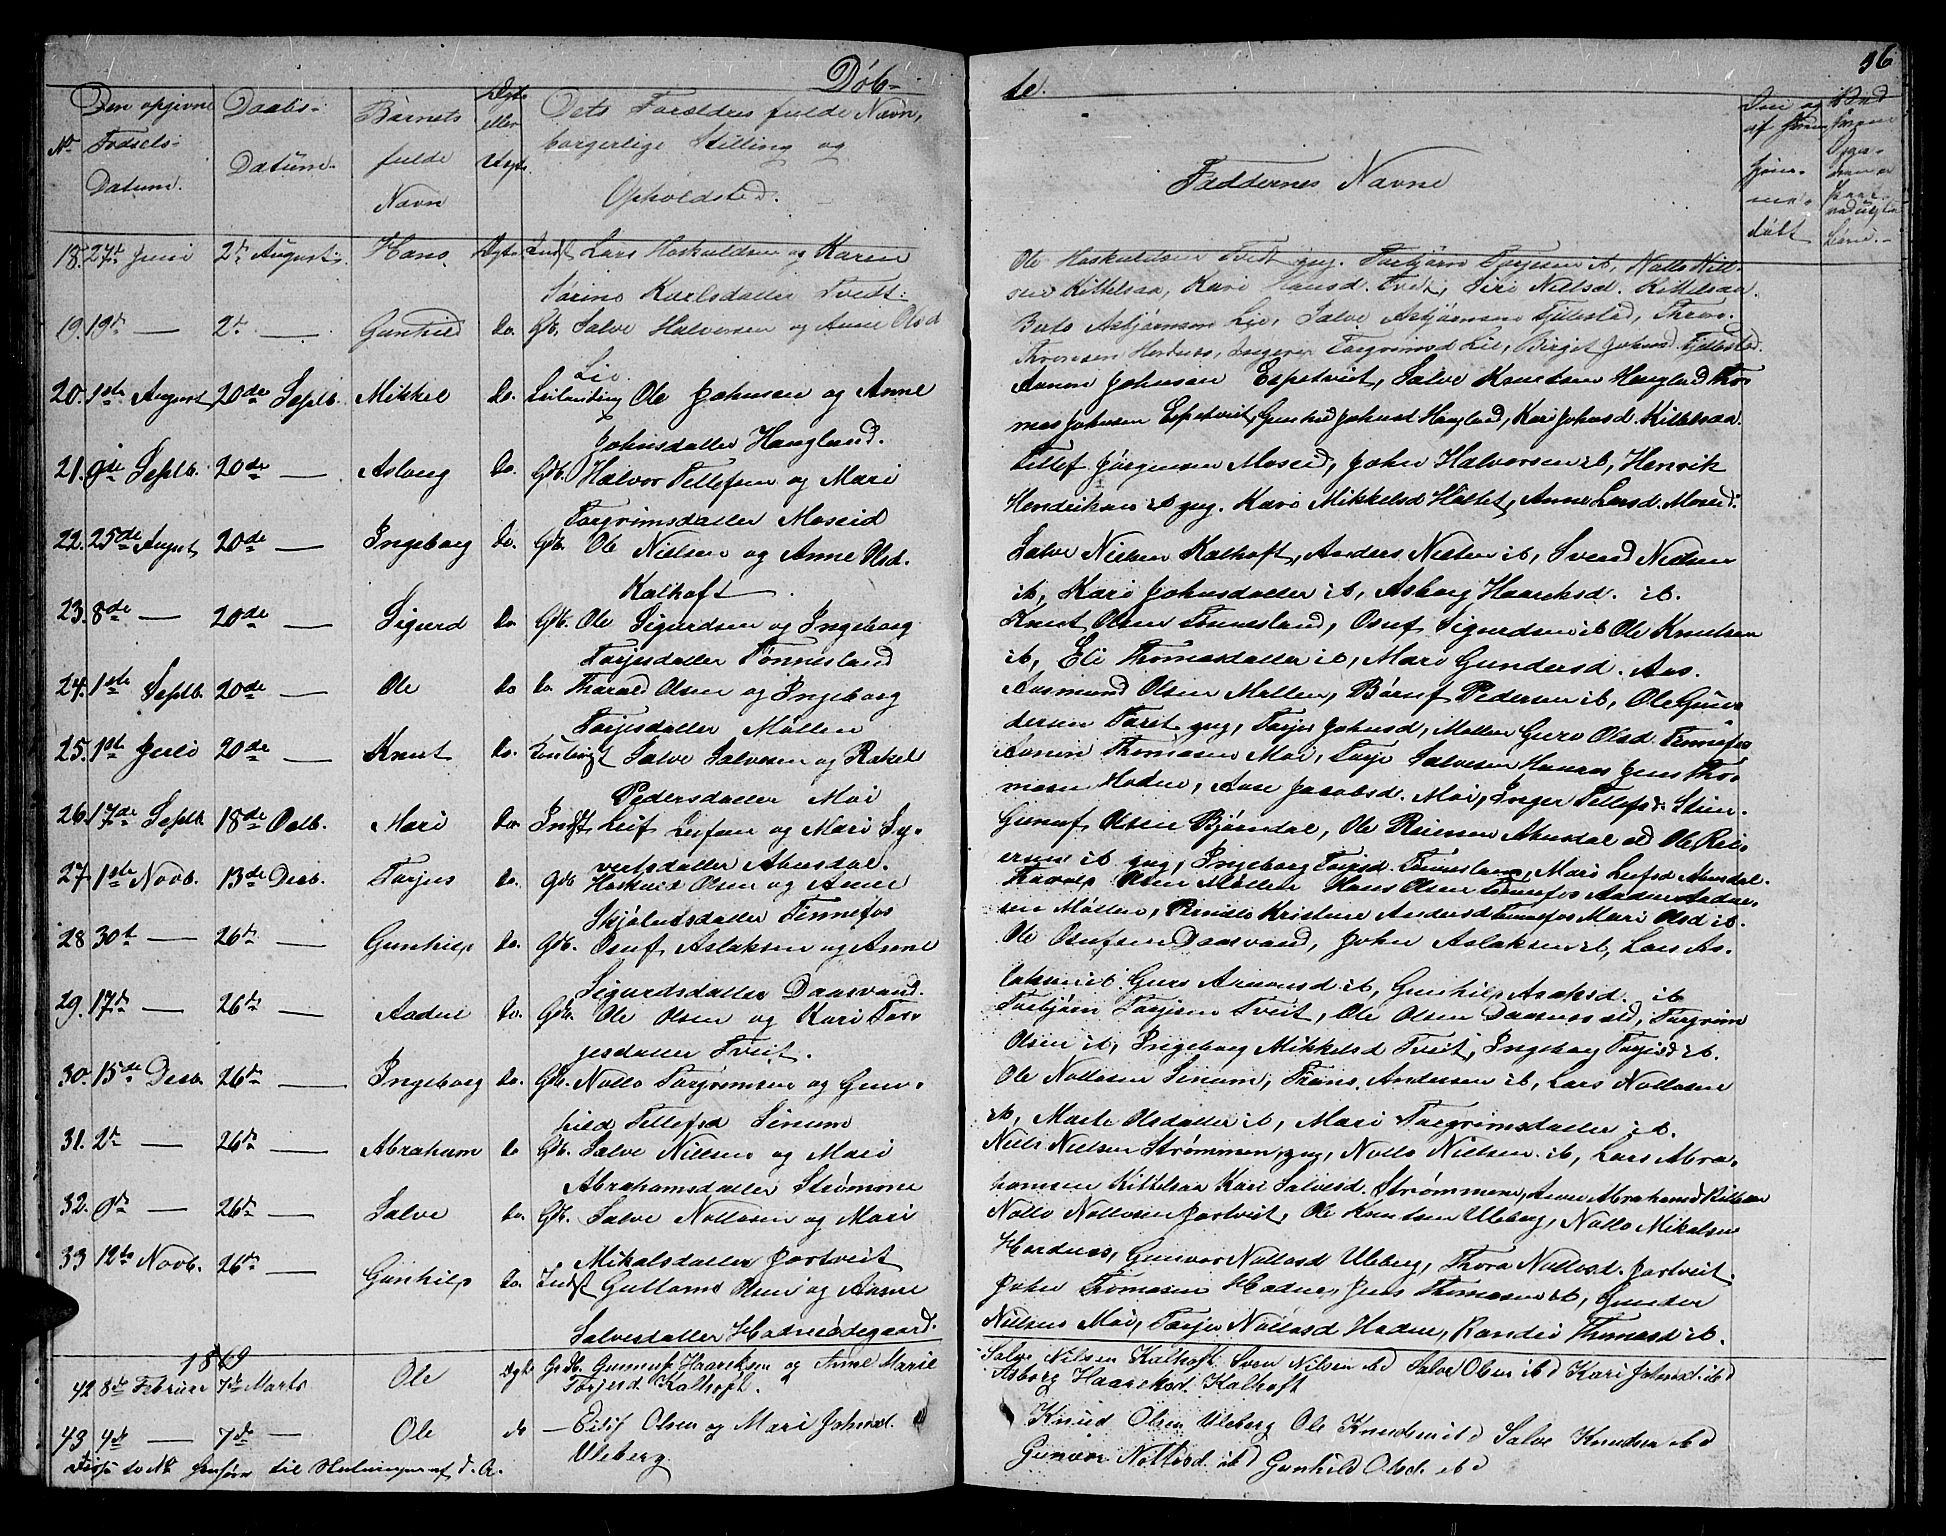 Døb-
te.
36
No
Den opgivne Fødsels-Datum.
Daabs-Datum.
Barnets fulde Navn
Dets Forældres fulde Navn, borgerlige Stilling og Opholdsted.
Faddernes Navne
18. 27de Juni 2de August Hans Ægte Indst Lars Hoskuldsen og Karen
Sørine Karlsdatter Tveit.
Ole Hoskuldsen Tveit gug. Torbjørn Torjesen ib, Nollo Niel-
sen Kittelsaa, Kari Hansd. Tveit, Siri Nielsd. Kittelsaa.
19. 19de — 2de — Gunhild Do. Gb. Salve Halvorsen og Anne Olsd
Lie
Berto Asbjørnsen Lie, Salve Asbjørnsen Fjellestad, Thron
Thronsen Hordnes, Ingerer Torgrimsd Lie, Birget Johnsd. Fjellestad.
20. 1ste August 20de Septb. Mikkel Do. Leilending Ole Johnsen og Anne
Johnsdatter Haugland.
Aanon Johnsen Espetveit, Salve Knutsen Haugland Tho-
mas Johnsen Espetveit, Gunhild Johnsd Haugland, Kari Johnsd. Kittelsaa.
21. 9de Septb. 20de — Aslaug Do. Gdb. Halvor Tellefsen og Mari
Torgrimsdatter Moseid
Tellef Jørgensen Moseid, John Halvorsen ib, Henrik
Hendriksen ib gug. Kari Mikkelsd Holtet, Anne Larsd. Moseid.
22. 25de August 20de — Ingeborg Do. Gdb. Ole Nielsen og Anne Olsd.
Kalhoft.
Salve Nielsen Kalhoft, Anders Nielsen ib, Svend Nielsen
ib, Kari Johnsdatter ib, Asborg Haareksd. ib.
23. 8de — 20de — Sigurd Do. Gdb. Ole Sigurdsen og Ingeborg
Torjesdatter Tønnesland
Knut Olsen Tønnesland, Osuf Sigurdsen ib Ole Knutsen
ib, Eli Thomasdatter ib, Mari Gundersd. Aas.
24. 1ste Septb. 20de — Ole Do Do. Tharald Olsen og Ingeborg
Torjesdatter Møllen
Aasmund Olsen Møllen, Børuf Pedersen ib, Ole Gun-
dersen Tveit gug, Torjer Johnsd, Møllen Guro Olsd. Finnefos
25. 1ste Juli 20de — Knut Do. Salve Salvesen og Rakel
Pedersdatter Moi
Aanon Thomasen Moi, Torje Salvesen Haanes Jens Tho-
masen Hodne, Aase Jacobsd. Moi, Inger Tellefsd. Stien.
26. 17de Septb. 18de Octb. Mari Do. Indst Leif Leifsen og Mari Sy-
vertsdatter Abusdal.
Gunuf Olsen Bjørndal, Ole Reiersen Abusdal Ole Rei-
ersen ib gug, Ingeborg Torjesd. Tønnesland, Mari Leifsd Abusdal.
27. 1ste Novb. 13de Decb. Torjus Do. Gdb Hoskuld Olsen og Anne
Skjøluldsdatter Finnefos
Tharald Olsen Møllen Hans Olsen Finnefos Anders Ander-
sen Møllen, Pernille Kristine Andersd Finnefos Mari Olsd ib.
28 30te — 26de — Gunhild Do. Gdb. Osuf Aslaksen og Anne
Sigurdsdatter Daasvand.
Ole Osufsen Daasvand, John Aslaksen ib, Lars As-
laksen ib Guro Aanonsd ib, Gunhild Aslaksd. ib
29. 17de — 26de — Aadne Do. Gdb. Ole Olsen og Kari Tor-
jesdatter Tveit.
Torbjørn Torjesen Tveit, Ole Olsen Daasvand, Torgrim
Olsen ib, Ingeborg Mikkelsd Tveit, Ingeborg Torjesd ib.
30. 15de Decb. 26de — Ingeborg Do. Gdb. Nollo Torgrimsen og Gun-
hild Tellefsd Senum
Ole Nollosen Senum, Throns Andersen ib, Lars Nollosen
ib, Marte Olsdatter ib, Mari Torgrimsdatter ib.
31. 2de — 26de — Abraham Do Gdb. Salve Nielsen og Mari
Abrahamsdatter Strømme
Niels Nielsen Strømmen, gug, Nollo Nielsen ib, Lars Abra-
hamsen Kittelsaa Kari Salvesd. Strømmen, Anne Abrahamsd Kittelsaa
32. 8de — 26de — Salve Do. Gdb. Salve Nollosen og Mari
Mikalsdatter Jortveit
Nollo Nollosen Jortveit, Ole Knutsen Uleberg, Nollo Mikalsen
Hordnes, Gunvor Nollosd Uleberg, Thora Nollosd. Jortveit.
33 12te Novb. 26de — Gunhild Do. Indst Guttorm Olsen og Aasne
Salvesdatter Hodneødegaard.
John Thomasen Hodne, Jens Thomasen ib, Gunder
Nielsen Moi, Torjer Nollosd Hodne, Randei Thomasd ib.
1869
42 8de Februar 7de Marts Ole Ægte Grdb. Gunnuf Haareksen og Anne Marie
Torjesd. Kalhoft.
Salve Nilsen Kalhoft Sven Nilsen ibd Salve Olsen ibd Kari Johnsd. ibd
Asborg Haareksd. Kalhoft
43 4de — 7de — Ole do — Eilif Olsen og Mari Johnsd.
Uleberg
Knud Olsen Uleberg Ole Knudsen ibd Salve Knudsen ibd
Gunvor Nollosd. ibd Gunhild Olsd. ibd
Disse to No henføres til Slutningen af d. A.